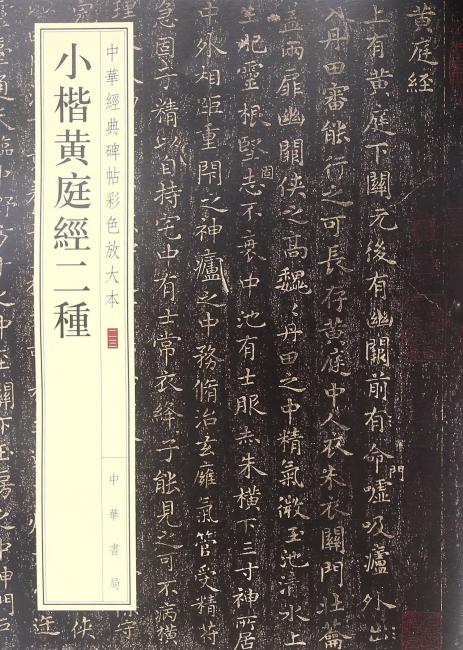 黄庭經
上有黄庭下關元後有幽闕前有命門嘘吸廬外出
入丹田審能行之可長存黄庭中人衣朱衣關門壯籥
盖兩扉幽闕俠之高巍〻丹田之中精氣微玉池清水上
生肥靈根堅志固不衰中池有士服赤朱横下三寸神所居
中外相距重閇之神廬之中務脩治玄廱氣管受精苻
急固子精以自持宅中有士常衣絳子能見之可不病横
中華經典碑帖彩色放大本 二三
小楷黄庭經二種
中華書局